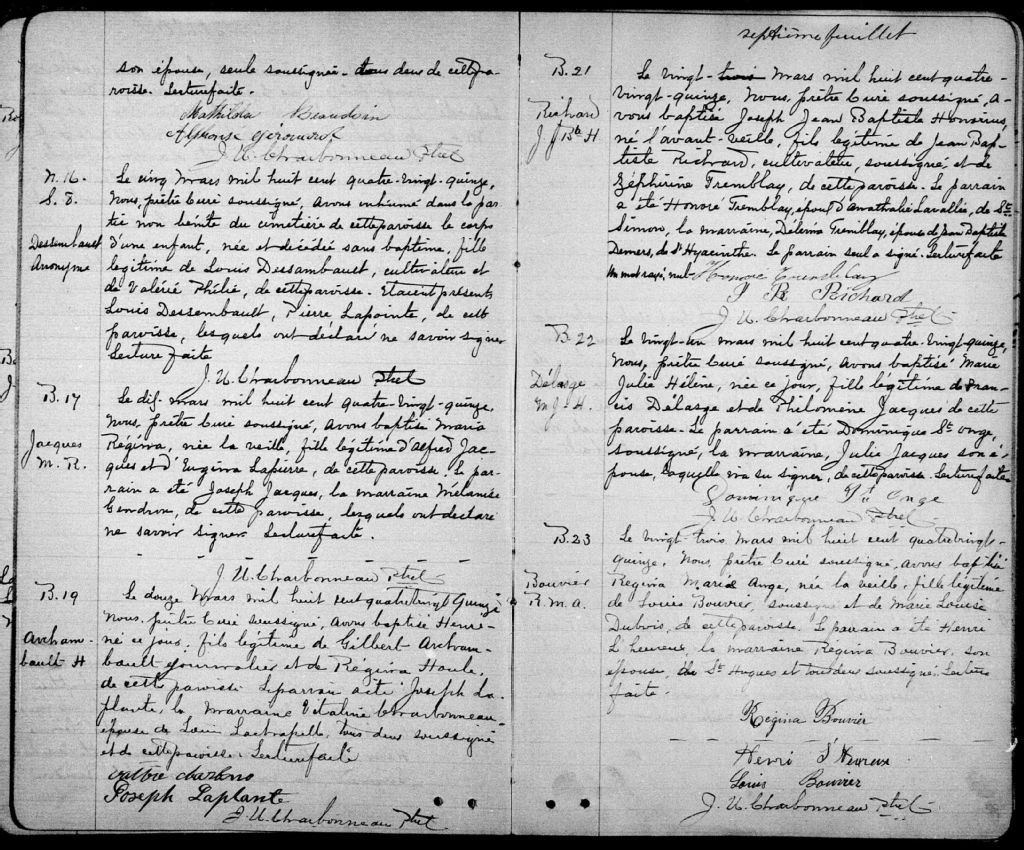 son épouse, seule soussignée - tous deux de cette pa-
roisse. Lecture faite.
Mathilda Beaudoin
Alphonse
J. U. Charbonneau Ptre
N. 16.
S. 8.
Dessembault
Anonyme
Le cinq mars mil huit cent quatre-vingt-quinze,
Nous, prêtre Curé soussigné, avons inhumé dans la par-
tie non bénite du cimetière de cette paroisse le corps
d'une enfant, née et décédée sans baptême, fille
légitime de Louis Dessambault, cultivateur et
de Valérie Philie, de cette paroisse. Etaient présents
Louis Dessembault, Pierre Lapointe, de cette
paroisse, lesquels ont déclaré ne savoir signer
Lecture faite
J. U. Charbonneau Ptre
B. 17
Jacques
M. R.
Le dix mars mil huit cent quatre-vingt-quinze,
Nous, prêtre Curé soussigné, avons baptisé Maria
Régina, née la veille, fille légitime d'Alfred Jac-
ques et d'Eugina Lapierre, de cette paroisse. Le par-
rain a été Joseph Jacques, la marraine Mélanise
Gendron, de cette paroisse, lesquels ont déclaré
ne savoir signer. Lecture faite.
J. U. Charbonneau Ptre
B. 19
Archam-
bault H
Le douze mars mil huit cent quatre vingt quinze
Nous, prêtre Curé soussigné, avons baptisé Henri
né ce jour, fils légitime de Gilbert Archam-
bault journalier et de Régina Houle,
de cette paroisse Le parrain a été Joseph La-
plante, la marraine Vitaline Charbonneau
épouse de Louis, tous deux soussignés
et de cette paroisse. Lecture faite
Joseph Laplante
J. U. Charbonneau Ptre
septième feuillet
B. 21
Richard
J. J. Bte H
Le vingt-trois mars mil huit cent quatre-
vingt-quinze, Nous, prêtre Curé soussigné, a-
vons baptisé Joseph Jean Baptiste Honorius,
né l'avant-veille, fils légitime de Jean Bap-
tiste Richard, cultivateur, soussigné et de
Zéphirine Tremblay, de cette paroisse. Le parrain
a été Honoré Tremblay, époux d'Amathalie Lavallée, de St
Simon, la marraine, Délima Tremblay, épouse de Jean Baptiste
Demers, de St Hyacinthe. Le parrain seul a signé. Lecture faite
Un mot rayé, nul. Honoré Tremblay
J B Richard
J. U. Charbonneau Ptre
B. 22
Délasge
M. J. H.
Le vingt-un mars mil huit cent quatre-vingt-quinze,
Nous, prêtre Curé soussigné, avons baptisé Marie
Julie Hélène, née ce jour, fille légitime de Fran-
cis Délasge et de Philomène Jacques de cette
paroisse. Le parrain a été Dominique St Onge,
soussigné, la marraine, Julie Jacques son é-
pouse, laquelle n'a su signer, de cette paroisse. Lecture faite
Dominique St Onge
J. U. Charbonneau Ptre
B. 23
Bouvier
R. M. A.
Le vingt-trois mars mil huit cent quatrevingt-
quinze, Nous, prêtre Curé soussigné, avons baptisé
Regina Marie Ange, née la veille, fille légitime
de Louis Bouvier, soussigné et de Marie Louise
Dubois, de cette paroisse. Le parrain a été Henri
L'Heureux, la marraine Régina Bouvier, son
épouse, de St Hugues et tous deux soussignés. Lecture
faite.
Régina Bouvier
Henri L'Heureux
Louis Bouvier
J. U. Charbonneau Ptre